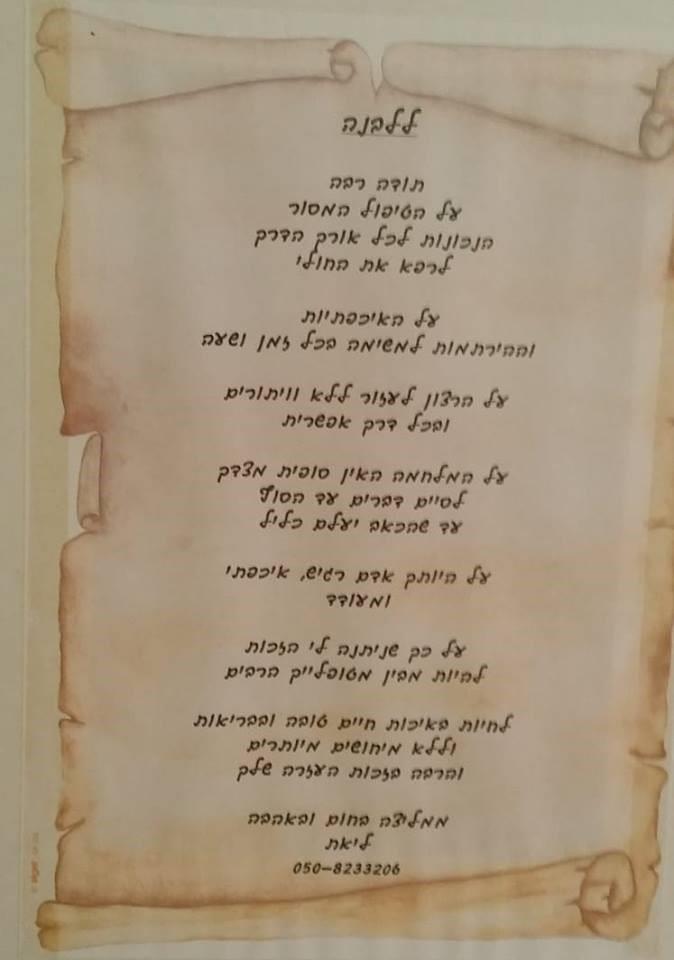 ללבנה
תודה רבה
על הטיפול המסור
הנכונות לכל אורק הדרק
לרפא את החולי
על האיכפתיות
וההירתמות למשימה בכל זמן ושעה
על הרצון לעזור ללא וויתורים
ובכל דרק אפשרית
על המלחמה האין סופית מצדק
לסיים דברים עד הסוף
עד שהכאב יעלם כליל
על היותק אדם רגיש, איכפתי
ומעודד
על כק שניתנה לי הזכות
להיות מבין מטופלייק הרבים
לחיות באיכות חיים טובה ובבריאות
וללא מיחושים מיותרים
והרבה בזכות העזרה שלק
ממליצה בחום ובאהבה
ליאת
050-8233206